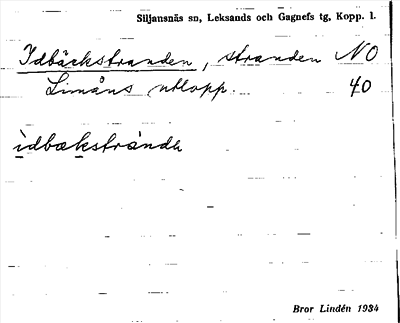 Siljansnäs sn, Leksands och Gagnefs tg, Kopp. l.
Idbäckstranden, stranden NO
Limåns utlopp. 40
idbækstrànda
Bror Lindén 1934